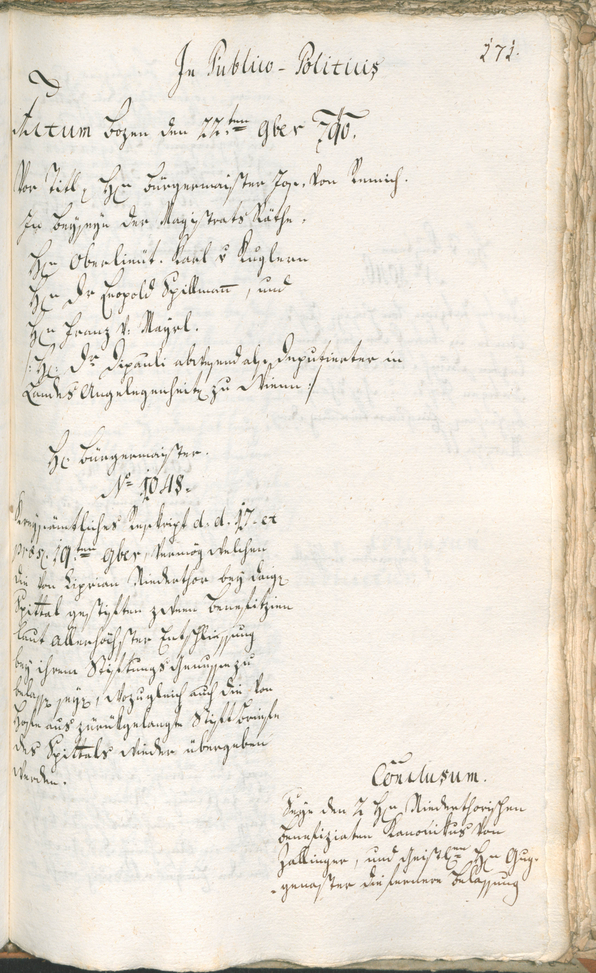 171.
In Publico-Politicis
Actum Bozen den 22.ten 9ber 790.
Vor Titl. Hn Bürgermaister Jos. von Remich.
In beyseyn der Magistrats Räthe,
Hn Oberlieut. Karl v Kuglern
Hn Dr Leopold Spillmann, und
Hn Franz v: Mayrl.
/: H: Dr Dipauli abwesend als Deputierter in
Landes Angelegenheiten zu Wienn :/
H: Bürgermaister.
No 1048.
Kreysämtliches Reskript d. d. 17. et
präs. 19.ten 9ber, vermög welchen
die von Ciprian Niederthor bey daig.
Spittal gestiften zween Benefitzien
laut allerhöchster Entschliessung
bey ihrem Stiftungs Genusse zu
belassen seyn, wozugleich auch die von
Hofe aus zurükgelangte Stiftbriefe
des Spittals wieder übergeben
werden.
Conclusum.
Seye den 2 Hn Niederthorischen
Benefiziaten Kanonikus von
Zallinger, und Geistlen Hn Gug-
genaster die fernere Belassung